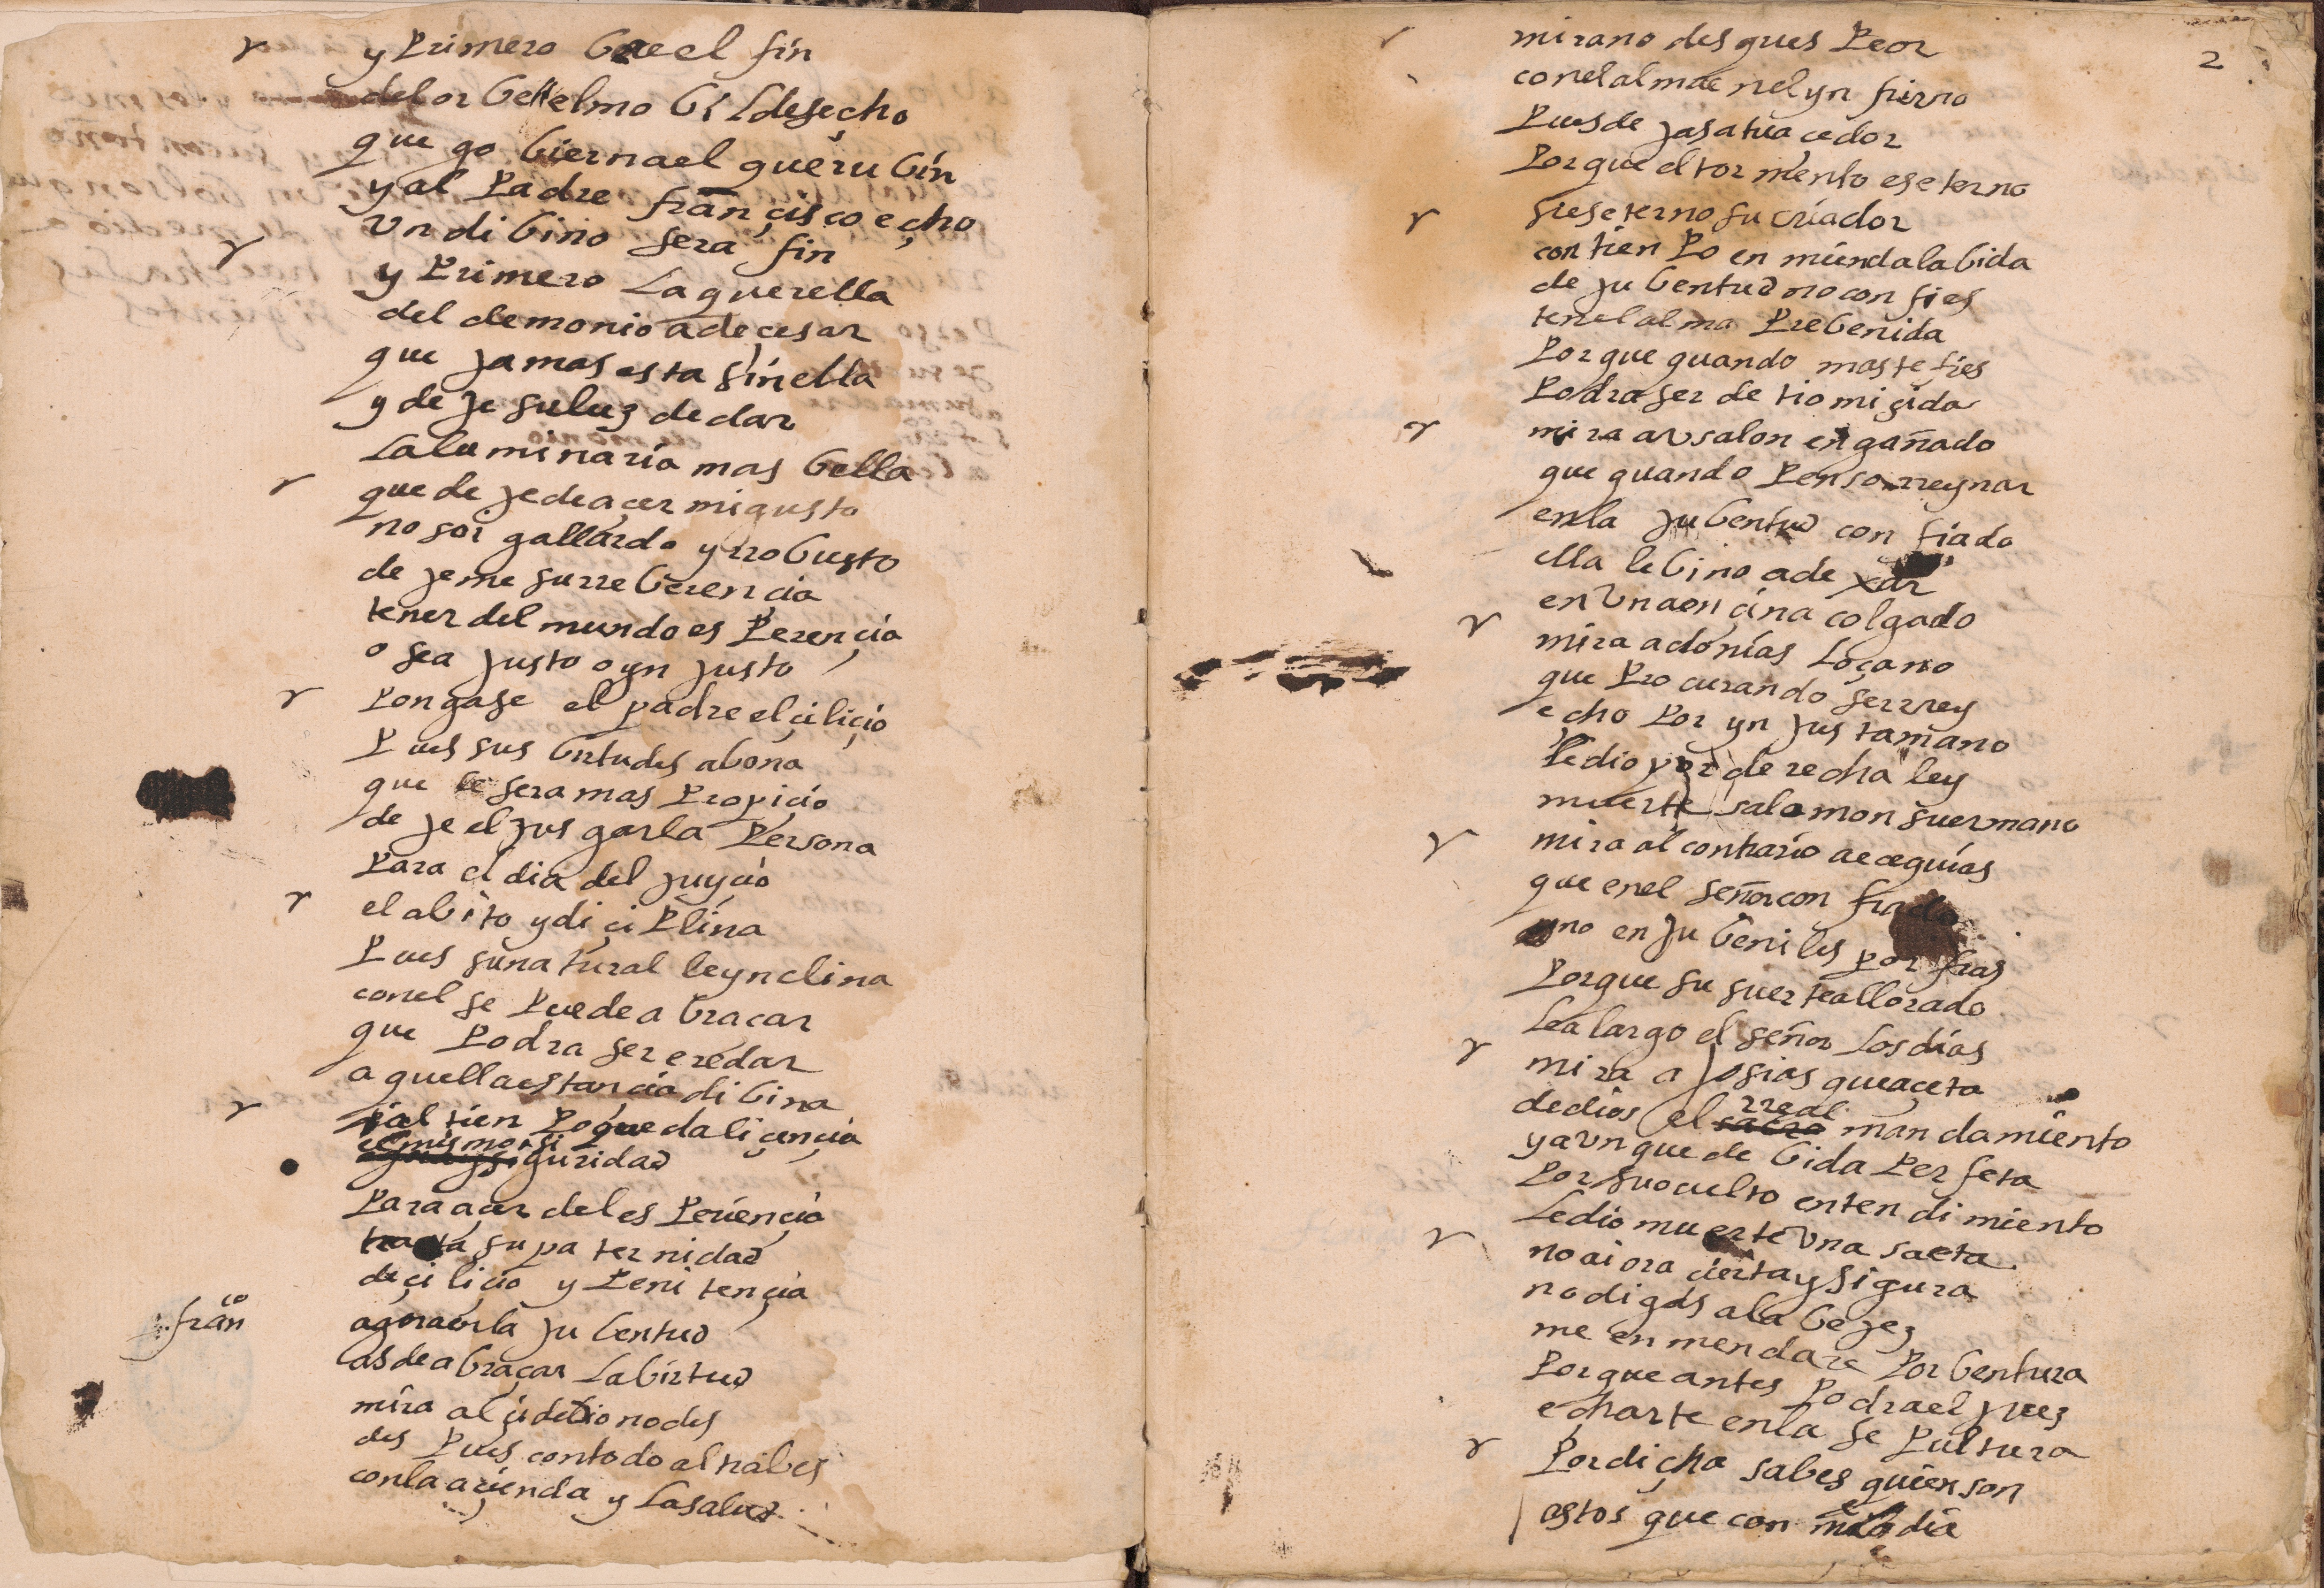 y Primero bere el fin
del orbe el elmo bil desecho
que gobierna el querubin
y al Padre françisco echo
vn dibino sera fin
y Primero la querella
del demonio a de cesar
que jamas esta sin ella
y deje su luz de dar
la luminaria mas bella
que deje de açer mi gusto
no soi gallardo y rrobusto
dejeme su rreberencia
tener del mundo esPerençia
o sea justo o ynjusto
Pongase el padre el çiliçio
Pues sus birtudes abona
que le sera mas Propiçio
deje el jusgar la Persona
Para el dia del juyçio
el abito y diçiPlina
Pues su natural le ynclina
con el se Puede abraçar
que Podra ser eredar
aquella estançia dibina
i al tienPo que da liçençia
el mismo siguridad
Para açer del esPeriençia
trata su paternidad
de çiliçio y Penitençia
franco
agora en la jubentud
as de abraçar la birtud
mira alçide tio no des
desPues con todo al trabes
con la açienda y la salud
2
mira no des ques Peor
con el alma en el ynfierno
Pues dejas a tu açedor
Porque el tormento es eterno
si es eterno su criador
con tienPo enmienda la bida
de jubentud no confies
ten el alma Prebenida
Porque quando mas te fies
Podra ser de ti omiçida
mira avsalon engañado
que quando Penso rreynar
en la jubentud confiado
ella le bino a dexar
en vna ençina colgado
mira adonias loçano
que Procurando ser rrey
echo Por ynjusta mano
le dio por derecha ley
muerte salomon su ermano
mira al contrario a eçequias
que en el señor confiado
y no en jubeniles porfias
Porque su suerte a llorado
le alargo el señor los dias
mira a josias que açeta
de dios el rreal mandamiento
y avnque de bida Perfeta
Por su oculto entendimiento
le dio muerte vna saeta
no ai ora çierta y sigura
no digas a la bejez
me enmendare Por bentura
Porque antes Podra el juez
echarte en la sePultura
Por dicha sabes quien son
estos que con melodia